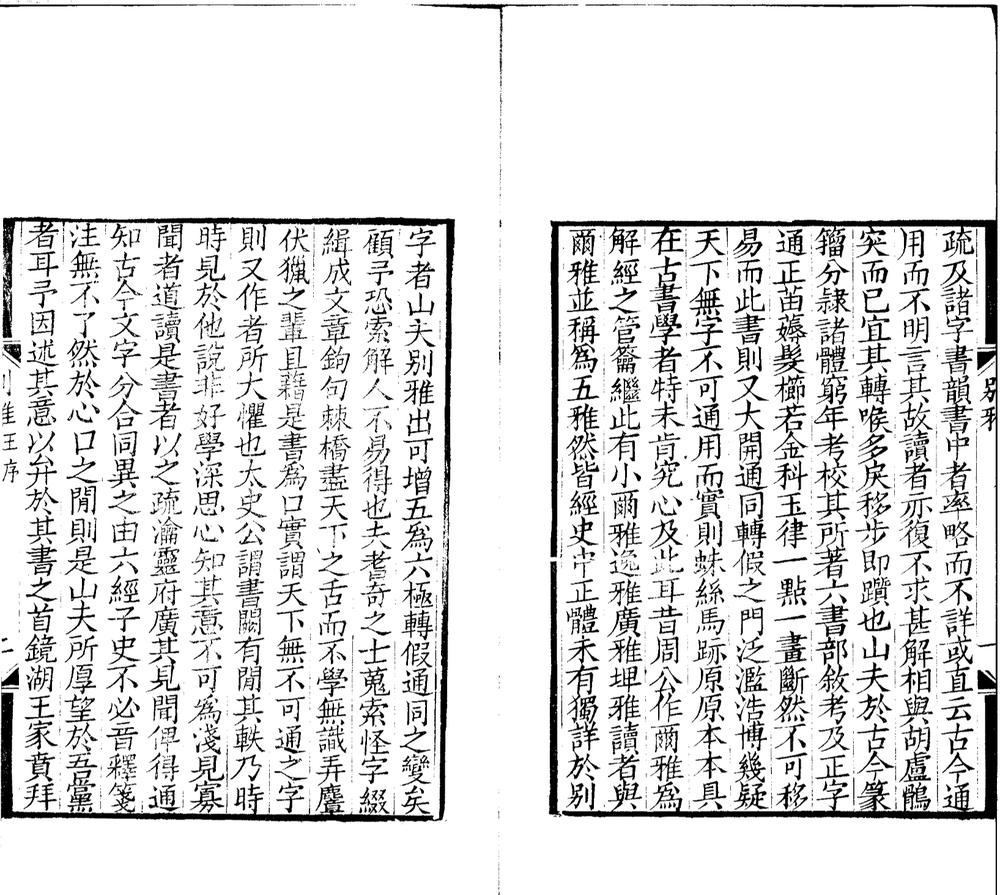 疏及諸字書韻書中者率略而不詳或直云古今通
用而不明言其故讀者亦復不求甚解相與胡盧鶻
突而已宜其轉喉多戾移步即躓也山夫於古今篆
籀分隸諸體窮年考校其所著六書部敘考及正字
通正苗薅髮櫛若金科玉律一點一畫斷然不可移
易而此書則又大開通同轉假之門泛濫浩博幾疑
天下無字不可通用而實則蛛絲馬跡原原本本具
在古書學者特未肯究心及此耳昔周公作爾雅為
解經之管籥繼此有小爾雅逸雅廣雅埤雅讀者與
爾雅並稱為五雅然皆經史中正體未有獨詳於別
別雅
一
字者山夫別雅出可增五為六極轉假通同之變矣
顧予恐索解人不易得也夫耆奇之士蒐索怪字綴
緝成文章鉤句棘橋盡天下之舌而不學無識弄麞
伏獵之輩且藉是書為口實謂天下無不可通之字
則又作者所大懼也太史公謂書闕有閒其軼乃時
時見於他說非好學深思心知其意不可為淺見寡
聞者道讀是書者以之疏瀹靈府廣其見聞俾得通
知古今文字分合同異之由六經子史不必音釋箋
注無不了然於心口之閒則是山夫所厚望於吾黨
者耳予因述其意以弁於其書之首鏡湖王家賁拜
別雅王序
二